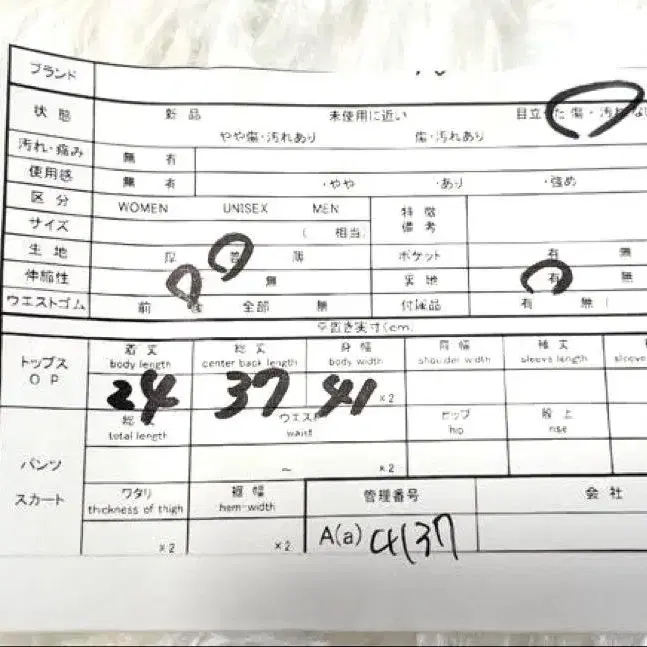 ブランド
状態 新品 未使用に近い 目立った傷・汚れなし
やや傷・汚れあり 傷・汚れあり
汚れ・痛み 無 有
使用感 無 有 ・やや ・あり ・強め
区分 WOMEN UNISEX MEN 特徴備考
サイズ ( 相当
生地 厚 普 薄 ポケット 有 無
伸縮性 無 裏地 有 無
ウエストゴム 前 後 全部 無 付属品 有 無 (
平置き実寸(cm.
トップス OP 着丈 総丈 身幅 肩幅 袖丈
body length center back length body width shoulder width sleeve length sleeve
24 37 41 ×2
総丈 ウエスト ヒップ 股上
total length waist hip rise
パンツ ~ ×2
スカート ワタリ 裾幅 管理番号 会社
thickness of thigh hem-width
×2 ×2 A(a) 4137